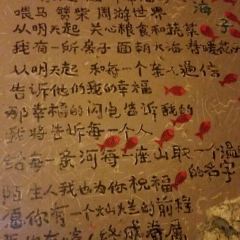 海子
喂马 劈柴 周游世界
从明天起 关心粮食和蔬菜
我有一所房子 面朝大海 春暖花开
从明天起 和每一个亲人通信
告诉他们我的幸福
那幸福的闪电告诉我的
我将告诉每一个人
给每一条河每一座山取一个温
的名字
陌生人我也为你祝福
愿你有一个灿烂的前程
愿你有情人终成眷属